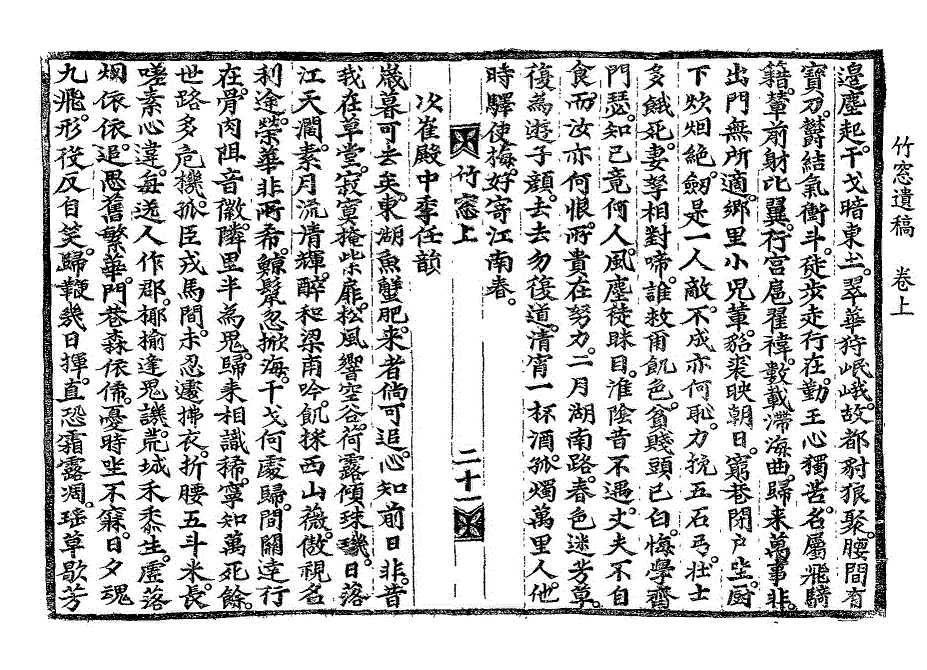 竹窓遺稿 卷上
邉塵起。干戈暗東土。翠華狩岷峨。故都豺狼聚。腰間有
寶刀。欝結氣衝斗。徒步走行在。勤王心獨苦。名屬飛騎
籍。羣前射比翼。行宮扈翟禕。數載滯海曲。歸来萬事非。
出門無所適。郷里小児輩。貉裘映朝日。窮巷閉戶坐。厨
下炊烟絶。劒是一人敵。不成亦何恥。力挽五石弓。壮士
多餓死。妻孥相對啼。誰救甫飢色。貧賤頭已白。悔學齊
門瑟。知已竟何人。風塵徒眯目。淮陰昔不遇。丈夫不自
食。而汝亦何恨。所貴在努力。二月湖南路。春色迷芳草。
復為遊子顔。去去勿復道。清宵一杯酒。孤燭萬里人。他
時驛使梅。好寄江南春。
竹窓上 二十一
次崔殿中季任韻
歳暮可去矣。東湖魚蟹肥。来者倘可追。心知前日非。昔
我在草堂。寂寞掩柴扉。松風響空谷。荷露傾珠璣。日落
江天濶。素月流清輝。醉和梁甫吟。飢採西山薇。傲視名
利途。榮華非所希。鯨鬣忽掀海。干戈何處歸。間關達行
在。骨肉阻音徽。隣里半為鬼。歸来相識稀。寧知萬死餘。
世路多危機。孤臣戎馬間。未忍遽拂衣。折腰五斗米。長
嗟素心違。每送人作郡。揶揄逢鬼譏。荒城禾黍生。虛落
烟依依。追思舊繁華。門巷森依俙。憂時坐不寐。日夕魂
九飛。形役反自笑。歸鞭幾日揮。直恐霜露凋。瑶草歇芳